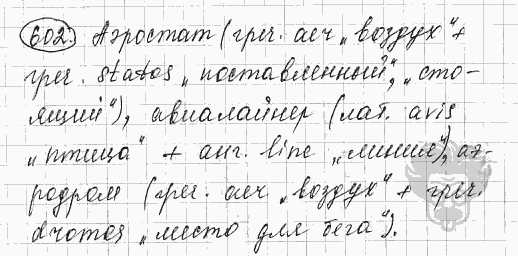 602. Аэростат (греч. аеч „воздух“ +
греч. statos „поставленный“, „сто-
ящий“), авиалайнер (лат. avis
„птица“ + анг. line „линия“), аэ-
родром (греч. аеч „воздух“ + греч.
dromos „место для бега“).